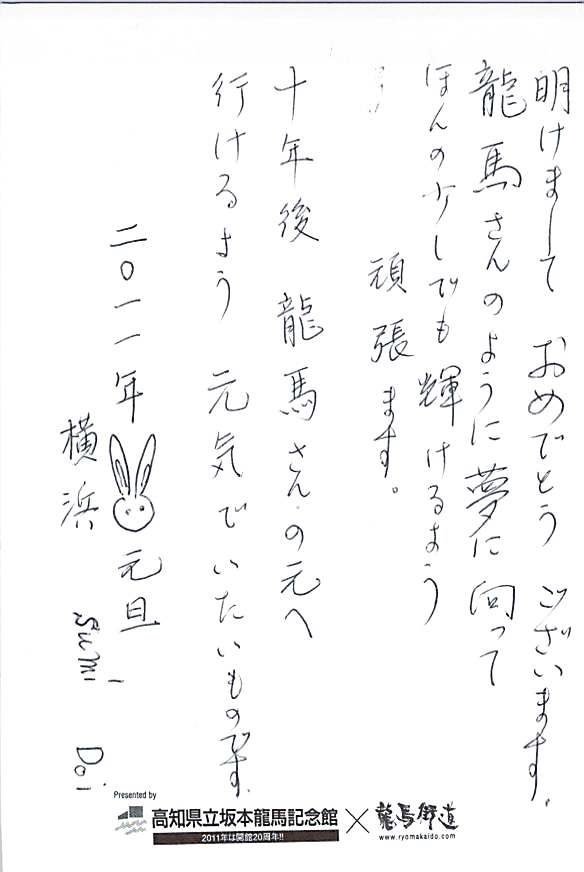 明けまして おめでとう ございます。
龍馬さんのように夢に向って
ほんの少しでも輝けるよう
頑張ます。
十年後 龍馬さんの元へ
行けるよう 元気でいたいものです。
二〇一一年 元旦
横浜 Sumi Doi
Presented by
高知県立坂本龍馬記念館 × 龍馬街道
2011年は開館20周年!!
www.ryomakaido.com